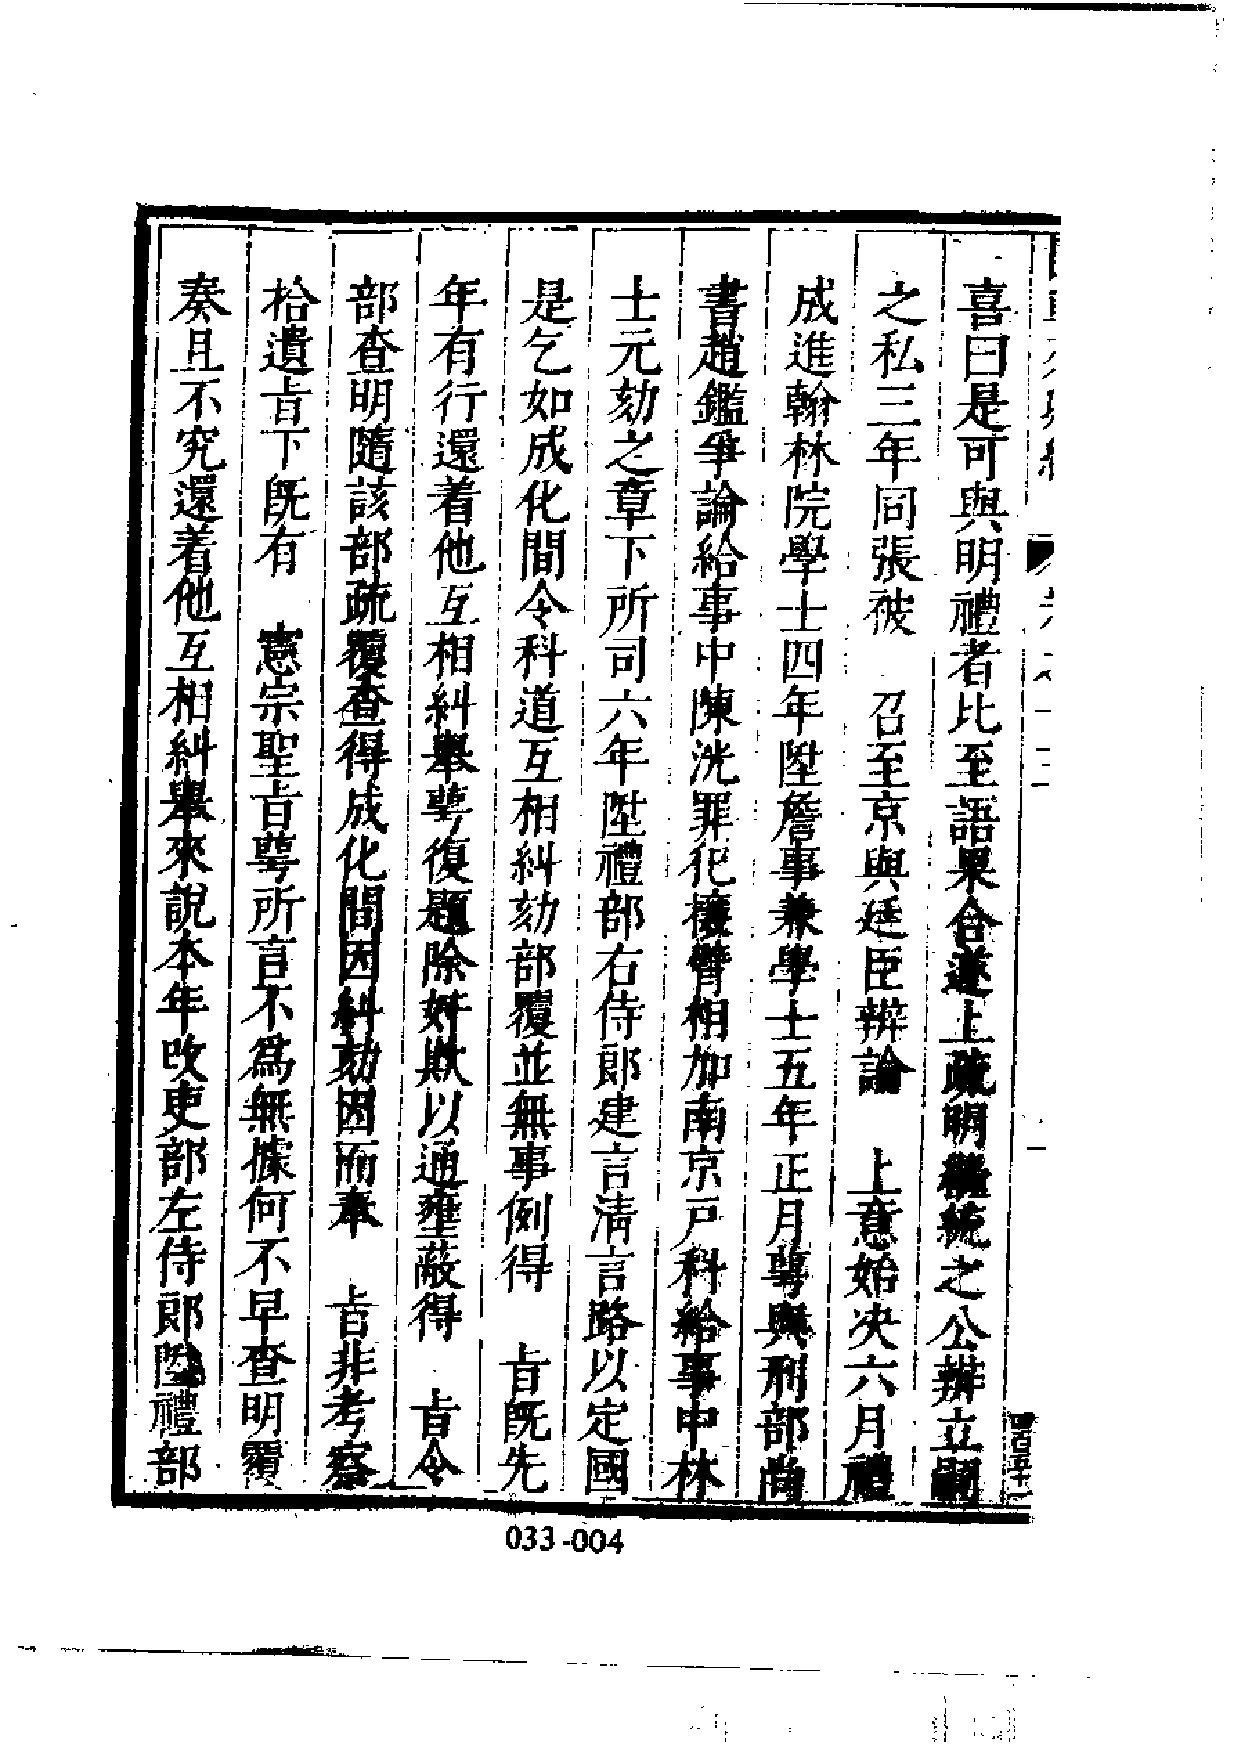 喜曰是可與明禮者比至語果合遂上疏明繼統之公辨立嗣
之私三年同張被　召至京與廷臣辨論　上意始决六月禮
成進翰林院學士四年陞詹事兼學士五年正月蕚與刑部尚
書趙鑑爭論給事中陳洸罪犯攘臂相加南京戸科給事中林
士元劾之章下所司六年陞禮部右侍郎建言清言路以定國
是乞如成化間令科道互相糾劾部覆並無事例得　㫖既先
年有行還着他互相糾舉蕚復題除奸欺以通壅蔽得　㫖令
部查明隨該部疏覆查得成化間因糾劾因而奉　㫖非考察
拾遺㫖下既有　憲宗聖㫖蕚所言不爲無據何不早查明覆
奏且不究還着他互相糾舉來說本年改吏部左侍郎陞禮部
033-004